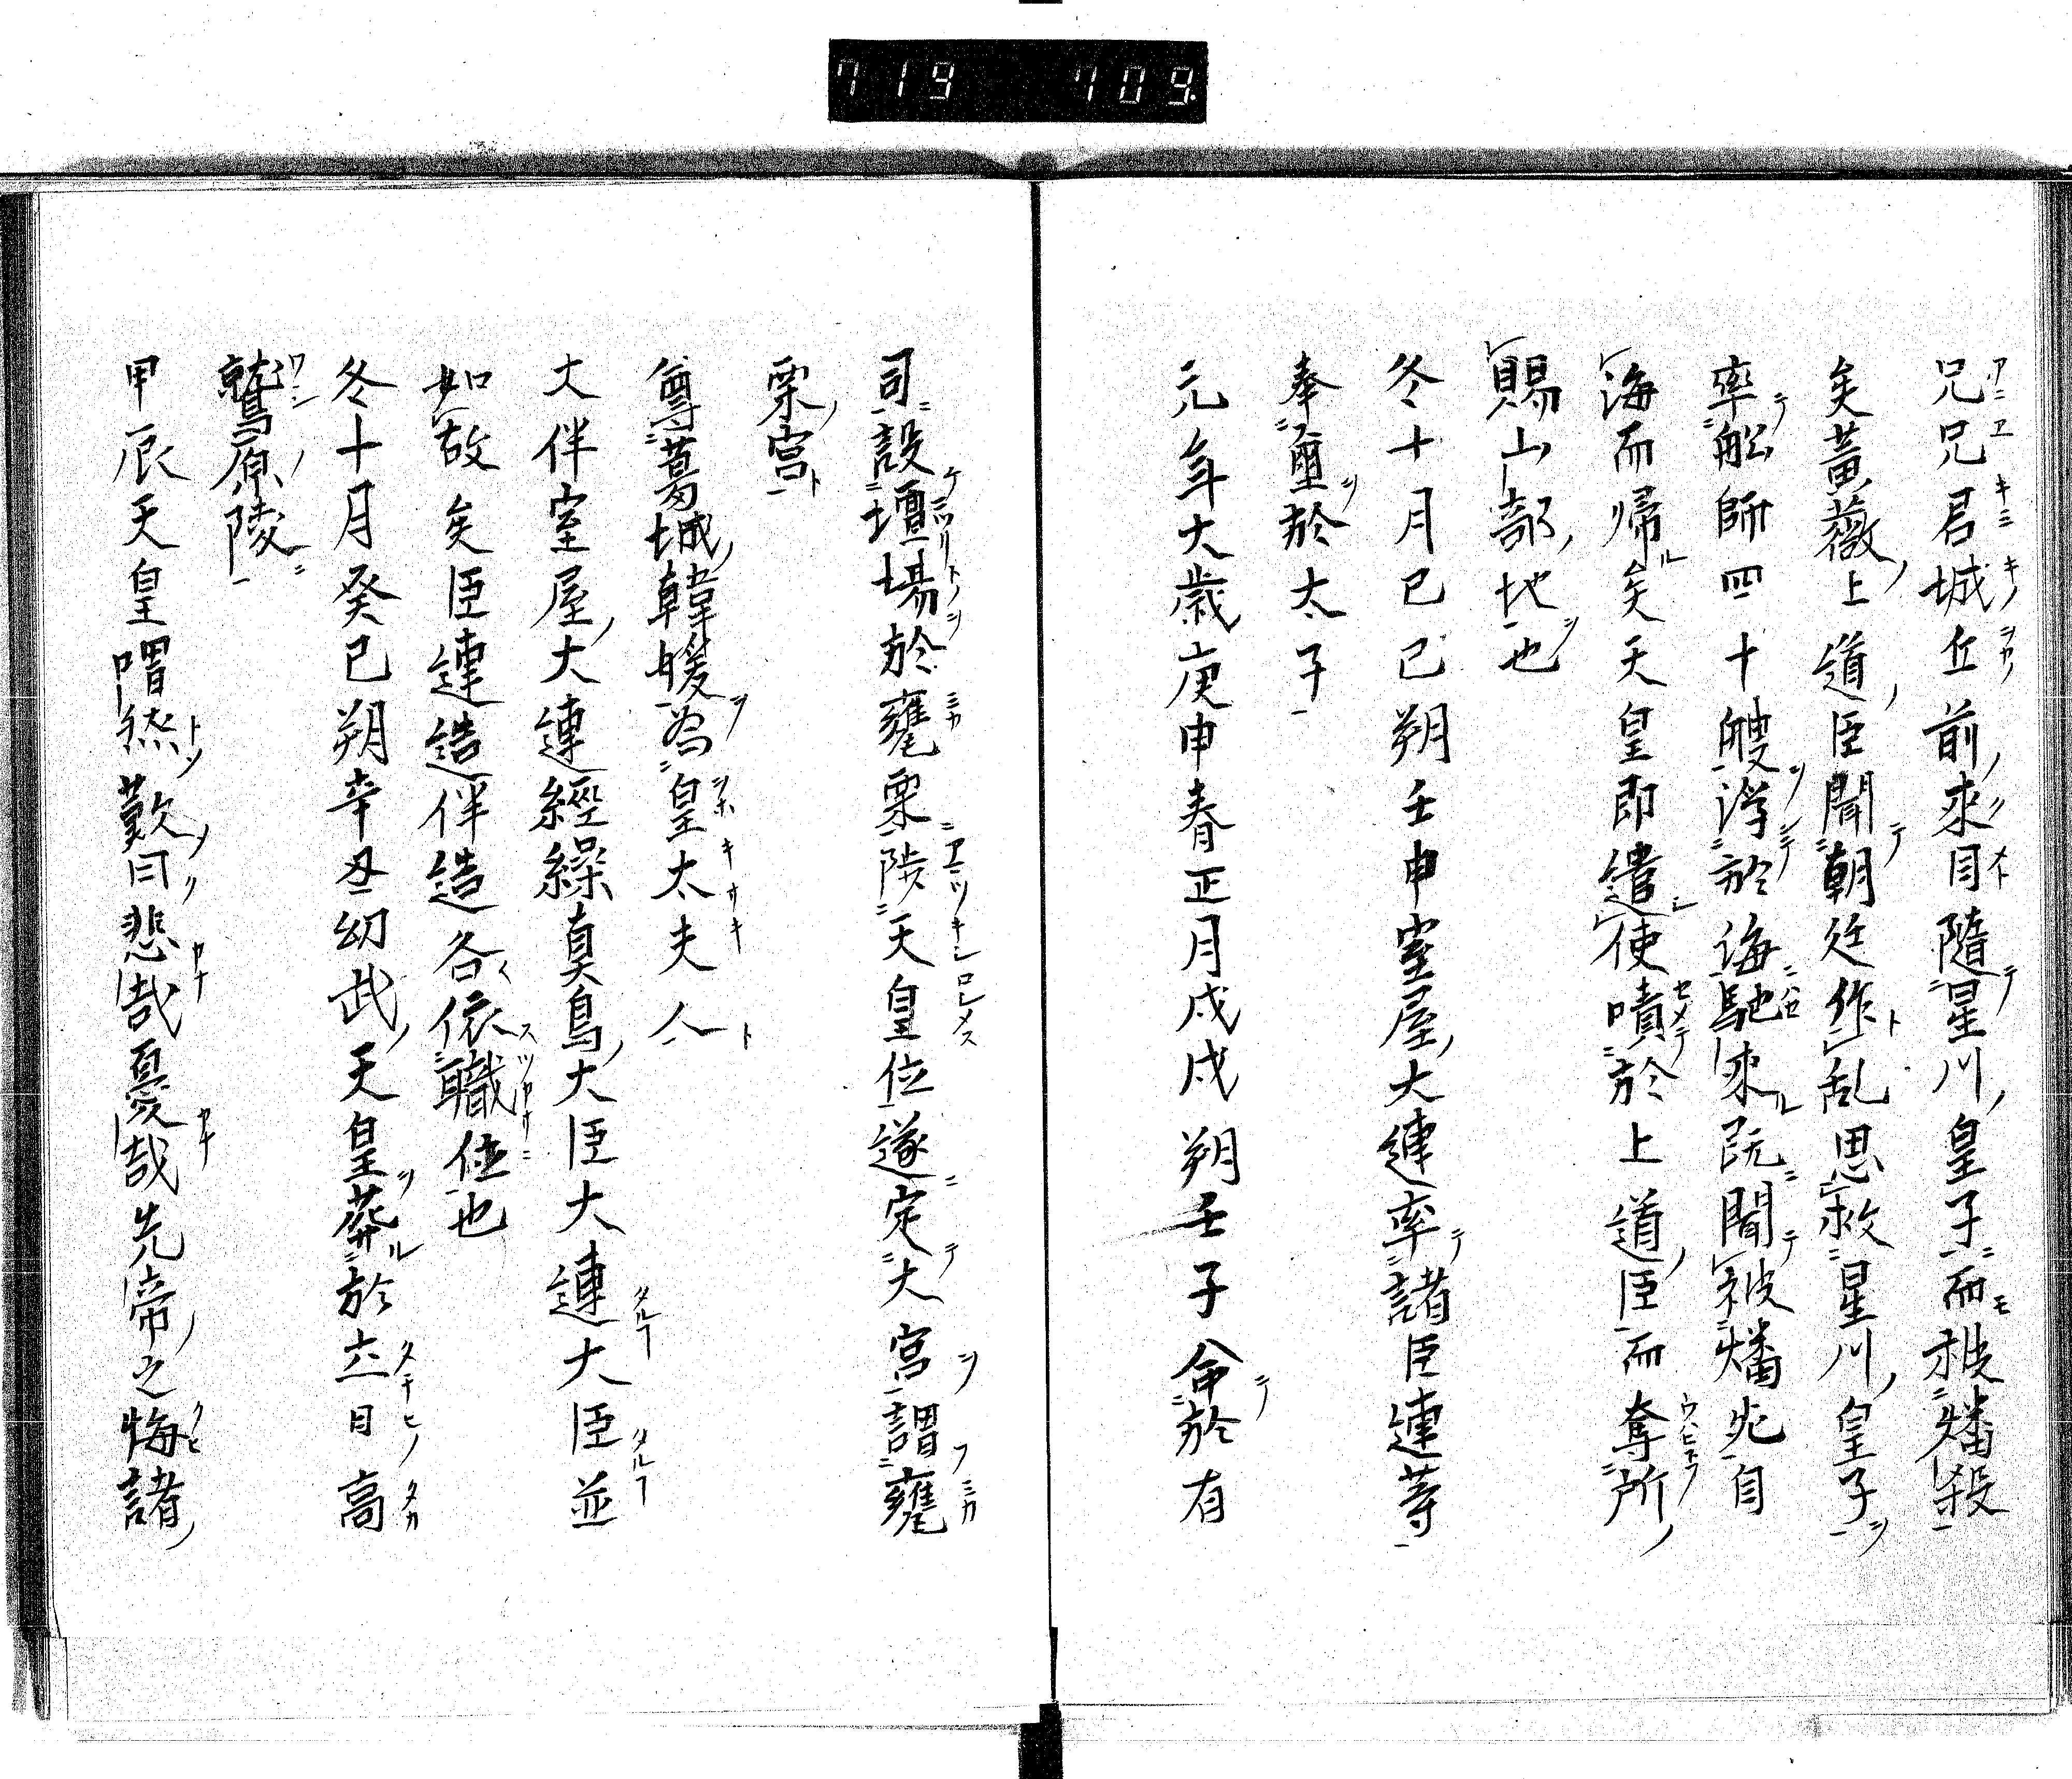 719 709.
兄兄君城丘前来目隨星川皇子而被燔殺
矣黃薇上道臣聞朝廷作乱思救星川皇子
率舩師四十艘浮於海馳来既聞被燔死自
海而帰矣天皇即遣使嘖於上道臣而奪所
賜山部地也
冬十月己巳朔壬申室屋大連率諸臣連等
奉璽於太子
元年大歳庚申春正月戊戌朔壬子命於有
司設壇場於甕栗陟天皇位遂定大宮謂甕
栗宮
尊葛城韓媛為皇太夫人
大伴室屋大連經繰真鳥大臣大連大臣並
如故矣臣連造伴造各依職位也
冬十月癸巳朔辛丑幼武天皇葬於立日高
鷲原陵
甲辰天皇喟然歎曰悲哉憂哉先帝之悔諸